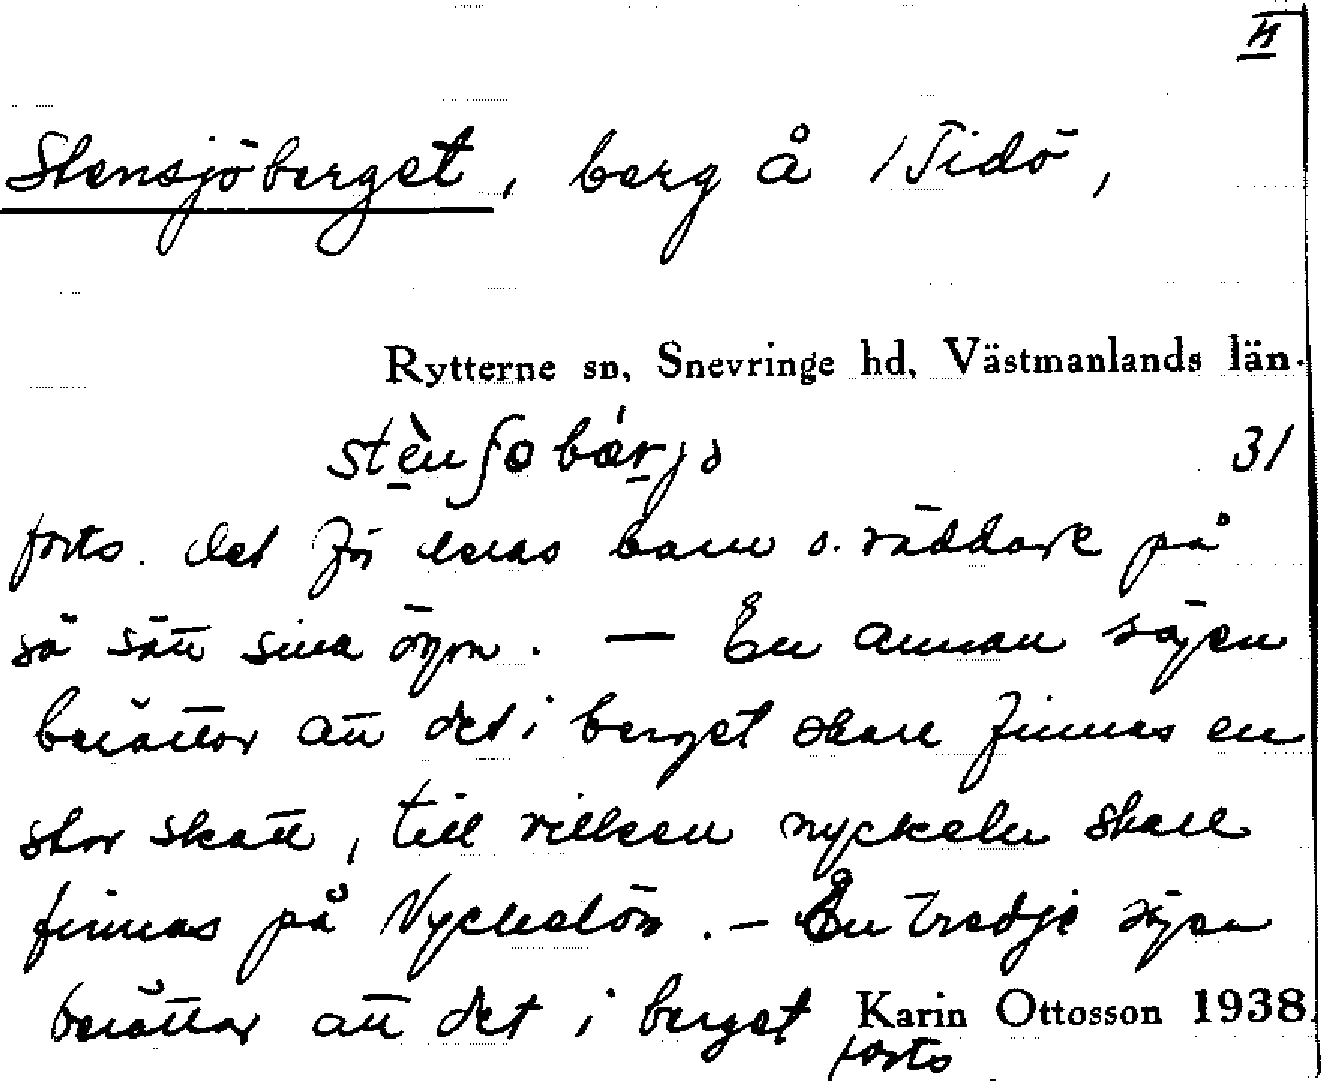 II
Stensjöberget, berg å /Tidö,
Rytterne sn, Snevringe hd, Västmanlands län.
31
forts. det för deras barn o. räddade på
så sätt sina ögon. — En annan sägen
berättar att det i berget skall finnas en
stor skatt, till vilken nyckeln skall
finnas på Nyckelön. — En tredje sägen
berättar att det i berget Karin Ottosson 1938
forts